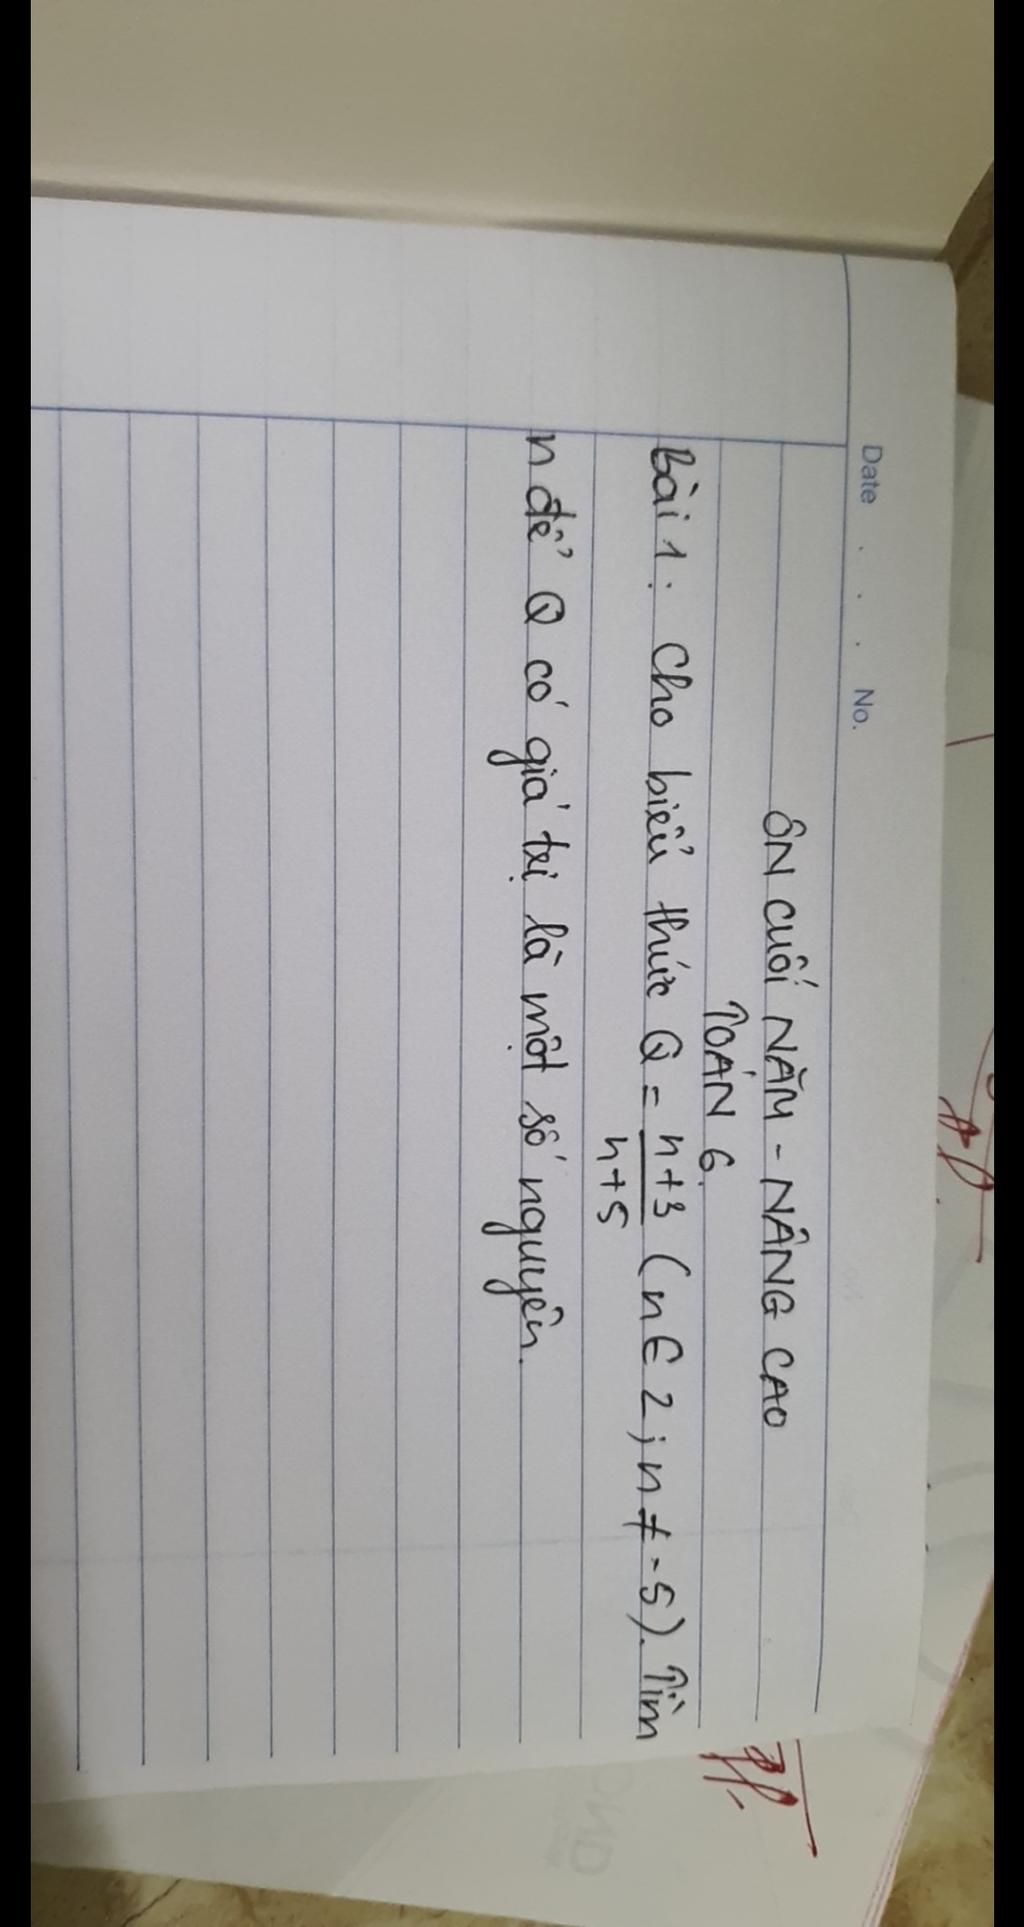 Date . . . No.
ÔN CUỐI NĂM - NÂNG CAO
TOÁN 6.
Bài 1: Cho biểu thức Q = n+3/n+5 (n ∈ Z; n ≠ -5). Tìm
n để Q có giá trị là một số nguyên.